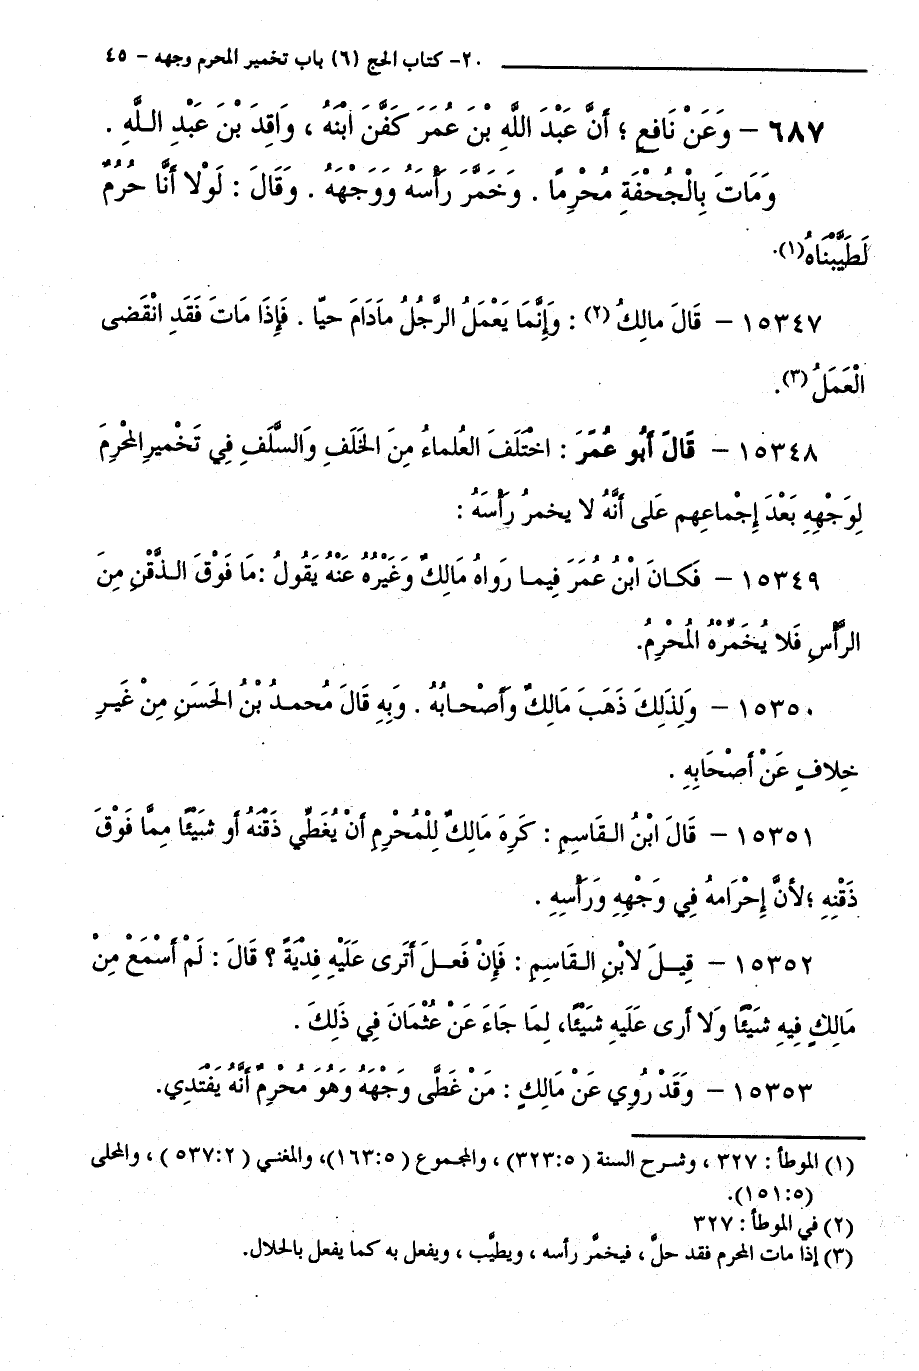 ٢٠- كتاب الحج (٦) باب تخمير المحرم وجهه - ٤٥
٦٨٧ - وَعَنْ نَافِعٍ ؛ أَنَّ عَبْدَ اللَّهِ بْنَ عُمَرَ كَفَّنَ ابْنَهُ ، وَاقِدَ بْنَ عَبْدِ اللَّهِ .
وَمَاتَ بِالْجُحْفَةِ مُحْرِمًا . وَخَمَّرَ رَأْسَهُ وَوَجْهَهُ . وَقَالَ : لَوْلا أَنَّا حُرُمٌ
لَطَيَّبْنَاهُ(١).
١٥٣٤٧ - قَالَ مالِكُ (٢) : وَإِنَّمَا يَعْمَلُ الرَّجُلُ مادَامَ حيّا . فَإِذَا مَاتَ فَقَدِ انْقَضى
الْعَمَلُ (٣).
١٥٣٤٨ - قَالَ أَبُو عُمَرَ : اختَلَفَ العُلماءُ مِنَ الخَلَفِ وَالسَّلَفِ فِي تَخْميرِ المُحْرِمِ
لِوَجْهِهِ بَعْدَ إِجْماعِهم عَلى أَنَّهُ لا يخمرُ رَأْسَهُ :
١٥٣٤٩ - فَكـانَ ابْنُ عُمَرَ فِيمـا رَواهُ مَالِكٌ وَغَيْرُهُ عَنْهُ يَقُولُ :مَا فَوْقَ الـذَّقْنِ مِنَ
الرَّأْسِ فَلا يُخَمِّرْهُ المُحْرِمُ.
١٥٣٥٠ - وَلِذَلِكَ ذَهَبَ مَالِكٌ وَأَصْحـابُهُ . وَبِهِ قَالَ مُحمـدُ بْنُ الحَسَنِ مِنْ غَيـرِ
خِلافٍ عَنْ أَصْحَابِهِ .
١٥٣٥١ - قَالَ ابْنُ القَاسِمِ : كَرِهَ مَالِكٌ لِلْمُحْرِمِ أَنْ يُغَطِّي ذَقْنَهُ أَو شَيْئًا مِمَّا فَوْقَ
ذَقْنِهِ ؛لأَنَّ إِحْرَامهُ فِي وَجْهِهِ وَرَأْسِهِ .
١٥٣٥٢ - قِيـلَ لابْنِ القَاسِمِ : فَإِنْ فَعـلَ أَتَرى عَلَيْهِ فِدْيَةً ؟ قَالَ : لَمْ أَسْمَعْ مِنْ
مَالِكٍ فِيهِ شَيْئًا وَلا أَرى عَلَيهِ شَيْئًا، لِمَا جَاءَ عَنْ عُثْمَانَ فِي ذَلِكَ .
١٥٣٥٣ - وَقَدْ رُوِي عَنْ مَالِكٍ : مَنْ غَطَّى وَجْهَهُ وَهُوَ مُحْرِمٌ أَنَّهُ يَفْتَدِي.
(١) الموطأ : ٣٢٧ ، وشـرح السنة ( ٥ : ٣٢٣) ، والمجموع ( ٥ : ١٦٣)، والمغنـي ( ٢ : ٥٣٧ ) ، والمحلى
(٥ : ١٥١).
(٢) في الموطأ : ٣٢٧
(٣) إذا مات المحرم فقد حلَّ ، فيخمَّر رأسه ، ويطيَّب ، ويفعل به كما يفعل بالحلال.